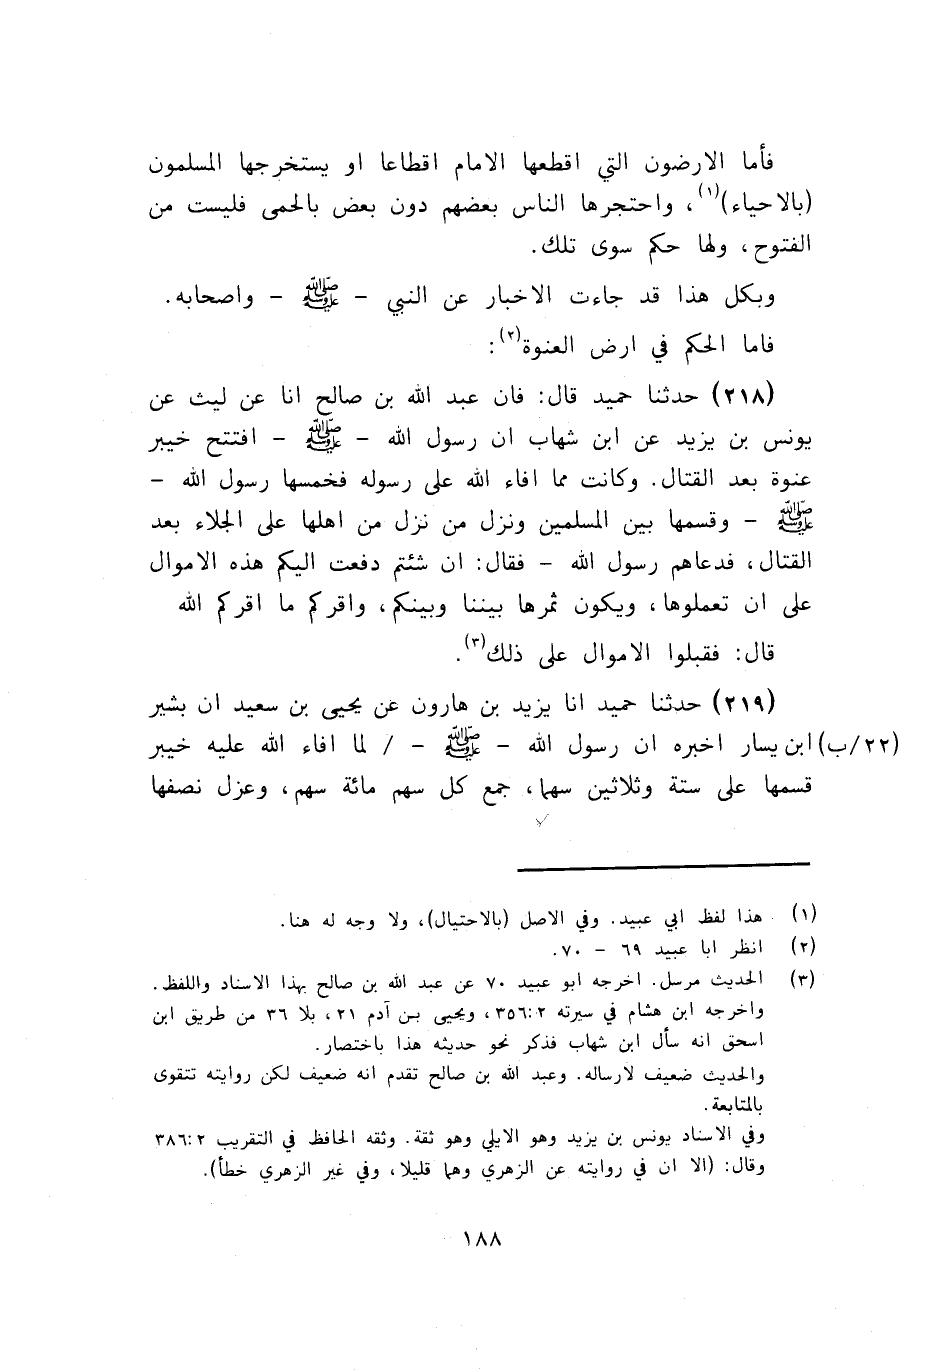 فأما الارضون التي اقطعها الامام اقطاعا او يستخرجها المسلمون
(بالاحياء)(١)، واحتجرها الناس بعضهم دون بعض بالحمى فليست من
الفتوح، ولها حكم سوى تلك.
وبكل هذا قد جاءت الاخبار عن النبي - ﷺ - واصحابه.
فاما الحكم في ارض العنوة(٢):
(٢١٨) حدثنا حميد قال: فان عبد الله بن صالح انا عن ليث عن
يونس بن يزيد عن ابن شهاب ان رسول الله - ﷺ - افتتح خيبر
عنوة بعد القتال. وكانت مما افاء الله على رسوله فخمسها رسول الله -
ﷺ - وقسمها بين المسلمين ونزل من نزل من اهلها على الجلاء بعد
القتال، فدعاهم رسول الله - فقال: ان شئتم دفعت اليكم هذه الاموال
على ان تعملوها، ويكون ثمرها بيننا وبينكم، واقركم ما اقركم الله
قال: فقبلوا الاموال على ذلك(٣).
(٢١٩) حدثنا حميد انا يزيد بن هارون عن يحيى بن سعيد ان بشير
(٢٢/ب) ابن يسار اخبره ان رسول الله - ﷺ - / لما افاء الله عليه خيبر
قسمها على ستة وثلاثين سهما، جمع كل سهم مائة سهم، وعزل نصفها
(١) هذا لفظ ابي عبيد. وفي الاصل (بالاحتيال)، ولا وجه له هنا.
(٢) انظر ابا عبيد ٦٩ - ٧٠.
(٣) الحديث مرسل. اخرجه ابو عبيد ٧٠ عن عبد الله بن صالح بهذا الاسناد واللفظ.
واخرجه ابن هشام في سيرته ٣٥٦:٢، ويحيى بن آدم ٢١، بلا ٣٦ من طريق ابن
اسحق انه سأل ابن شهاب فذكر نحو حديثه هذا باختصار.
والحديث ضعيف لارساله. وعبد الله بن صالح تقدم انه ضعيف لكن روايته تتقوى
بالمتابعة.
وفي الاسناد يونس بن يزيد وهو الايلي وهو ثقة. وثقه الحافظ في التقريب ٣٨٦:٢
وقال: (الا ان في روايته عن الزهري وهما قليلا، وفي غير الزهري خطأ).
١٨٨